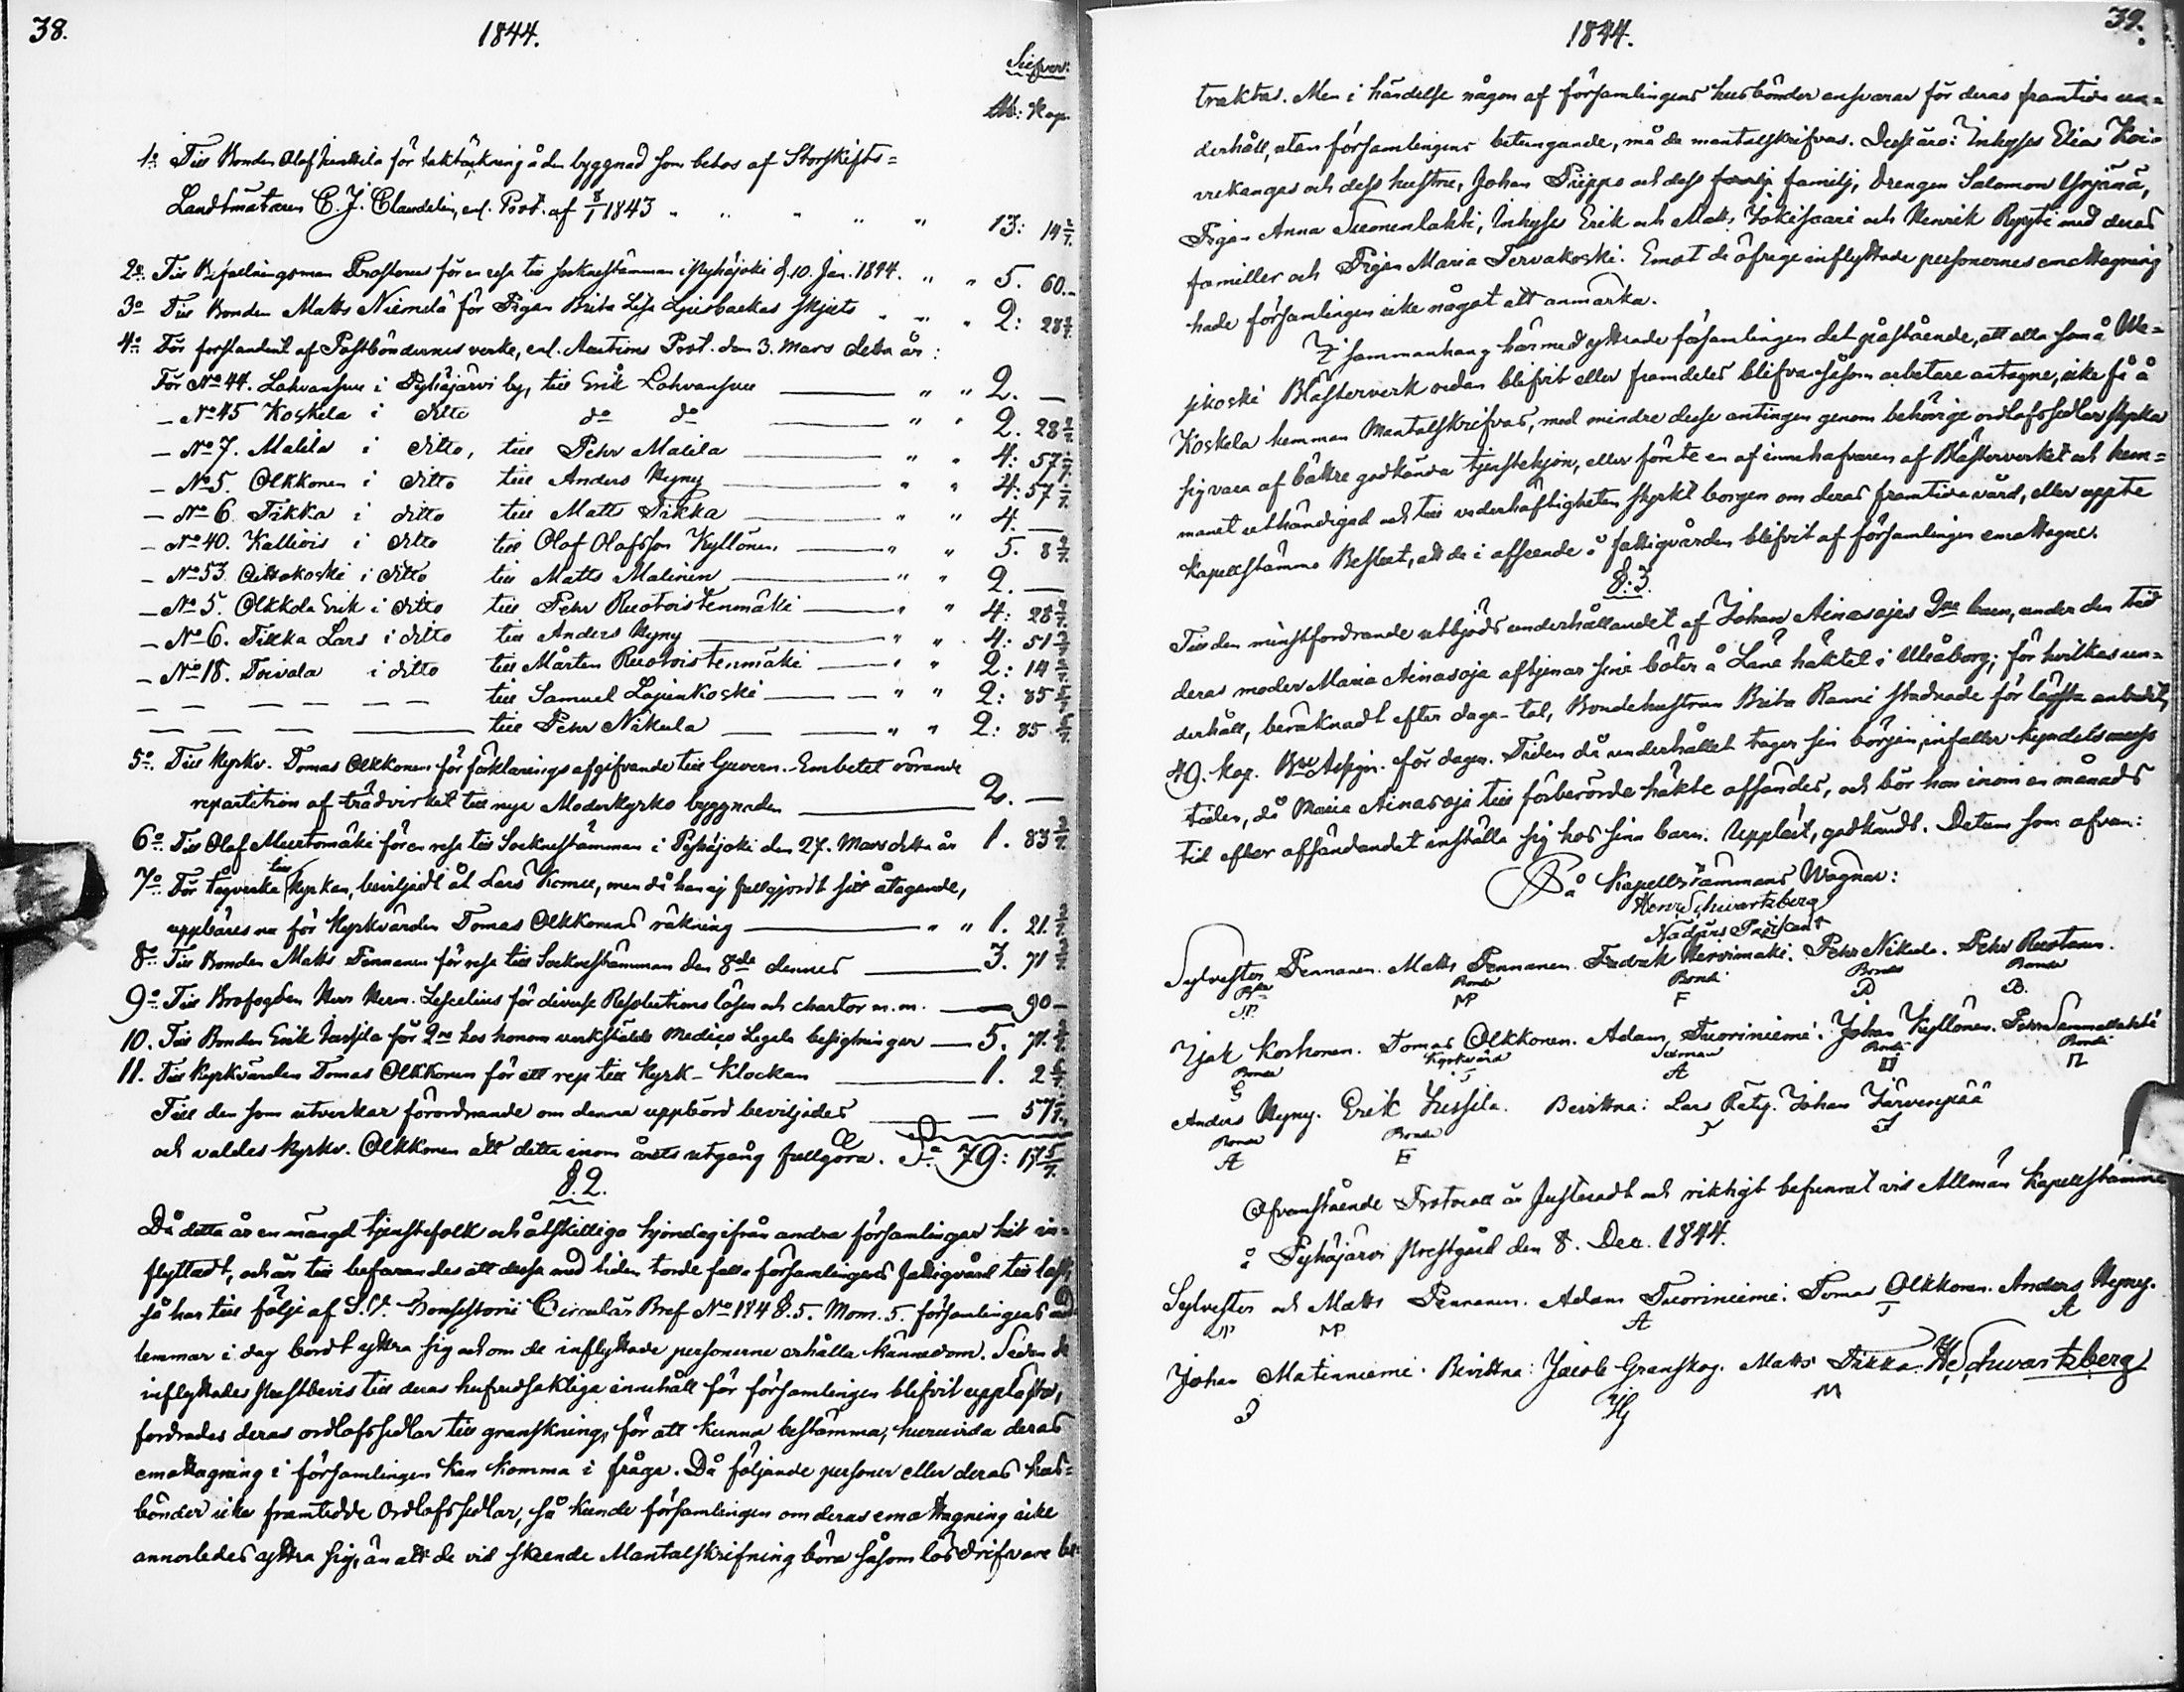 38.
1844.
Silfver:
Rb: Kop.
1o Till Bonden Olaf Heikkilä för taktäckning å den byggnad som bebos af Storskifts=
Landtmätaren C. J. Clandelin, enl. Prot. af 8/1 1843 " " " " " 13: 14 2/7.
2o. Till Befallningsman Frosterus för en resa till Socknestämman i Pyhäjoki d. 10. Jan. 1844. " " 5. 60.-
3o Till Bonden Matts Niemelä för Pigan Brita Lisa Ljusbackas skjuts " " " 2: 28 4/7
4o. För forslandet af Postböndernes verke, enl. Auctions Prot. den 3. Mars detta år:
För No 44. Lohvansuu i Pyhäjärvi by, till Erik Lohvansuu " " 2. —
— No 45 Koskela i ditto do do " " 2. 28 4/7
— No 7. Malila i ditto, till Pehr Malila " " 4: 57 1/7
— No 5. Olkkonen i ditto till Anders Nyny " " 4: 57 1/7
— No 6 Tikka i ditto till Matts Tikka " " 4. —
— No 40. Kallioi i ditto till Olof Olofsson Kyllönen " " 5. 8 4/7
— No 53. Aittokoski i ditto till Matts Malinen " " 2. —
— No 5. Olkkola Erik i ditto till Pehr Ruotoistenmäki " " 4: 28 4/7
— No 6. Tikka Lars i ditto till Anders Nyny " " 4: 51 3/7
— No 18. Toivola i ditto till Mårten Ruotoistenmäki " " 2: 14 2/7
— — — — — — till Samuel Lajunkoski — — " " 2: 85 5/7
— — — — till Pehr Nikula — — " " 2: 85 5/7
5o. Till Kyrkv. Tomas Olkkonen för förklarings afgifvande till Guvern. Embetet rörande
repartition af trädvirket till nya Moderkyrko byggnaden 2. —
6o. Till Olof Murtomäki för en resa till Socknestämman i Pyhäjoki den 27. Mars detta år 1. 83
7o. För tagverke till Kyrkan, beviljadt åt Lars Komu, men då han ej fullgjordt sitt åtagande,
uppbäres nu för Kyrkvärden Tomas Olkkonens räkning " " 1. 21.
8o. Till Bonden Matts Pennanen för resa till Socknestämman den 8de dennes 3. 71
9o. Till Krofogden Herr Herm. Lescelius för diverse Resolutions lösen och chartor m.m. — 90 —
10. Till Bonden Erik Jussila för 2ne hos honom verkstälde Medico Legala besigtningar — 5. 71.
11. Till Kyrkvärden Tomas Olkkonen för ett rep till Kyrk-Klockan 1. 2 6/7
Till den som utverkar förordnande om denna uppbörd beviljades — 57 1/7.
och valdes Kyrkv. Olkkonen att detta inom årets utgång fullgöra. Sa 79: 17 5/7.
§.2.
Då detta år en mängd tjenstefolk och åtskilliga hjondag ifrån andra församlingar hit in=
flyttadt, och är till befarandes att dessa med tiden torde falla församlingens fattigvård till last,
så har till följe af S.V. Consistorii Circulär Bref No 184 §.5. Mom. 5. församlingens
lemmar i dag bordt yttra sig och om de inflyttade personerne erhålla kännedom. Sedan de
inflyttades prestbevis till deras hufvudsakliga innehåll för församlingen blifvit uppläste,
fordrades deras orlofssedlar till granskning, för att kunna bestämma, huruvida deras
emottagning i församlingen kan komma i fråga. Då följande personer eller deras hus=
bönder icke framtedde Orlofssedlar, så kunde församlingen om deras emottagning icke
annorledes yttra sig, än att de vid skeende Mantalskrifning böra såsom lösdrifvare be=
39.
1844.
traktas. Men i händelse någon af församlingens husbönder ansvarar för deras framtids un=
derhåll, utan församlingens betungande, må de mantalskrifvas. Desse äro: Inhyses Elias Koi=
vukangas och dess hustru, Johan Piippo och dess familj familj, Drengen Salomon Yrjänä,
Pigan Anna Suonenlahti, Inhyses Erik och Matts Jokisaari och Henrik Ryyti med deras
familler och Pigan Maria Tervakoski. Emot de öfrige inflyttade personernes emottagning
hade församlingen icke något att anmärka.
I sammanhang härmed yttrade församlingen det påstående, att alla som å We=
sikoski Blästerverk redan blifvit eller framdeles blifva såsom arbetare antagne, icke få å
Koskela hemman Mantalskrifvas, med mindre desse antingen genom behörige orlofssedlar styrka
sig vara af bättre godkända tjenstehjon, eller förete en af innehafvaren af Blästerverket och hem=
manet uthändigad och till vederhäftigheten styrkt borgen om deras framtida vård, eller uppte
Kapellstämmo Beslut, att de i afseende å fattigvården blifvit af församlingen emottagne.
§.3.
Till den minstfordrande utbjöds underhållandet af Johan Ainasojas 2ne barn, under den tid
deras moder Maria Ainasoja aftjenar sine böter å Läne häktet i Uleåborg; för hvilkas un=
derhåll, beräknadt efter dage-tal, Bondehustrun Brita Ranni stadnade för lägsta anbudet,
49. kop. Bco Assign. för dagen. Tiden då underhållet tager sin början, infaller kyndelsmesso
tiden, då Maria Ainasoja till förberörde häkte affändes, och bör hon inom en månads
tid efter affändandet inställa sig hos sina barn. Uppläst, godkändt. Datum som ofvan:
På Kapellstämmans Wägnar:
Henr. Schwartzberg
Nådårs Predikant
Sylvester Pennanen. Matts Pennanen. Fredrik Hervimäki. Pehr Nikula. Pehr Ruotanen.
Bonde Bonde Bonde Bonde
SP. MP F P B.
Isak Korhonen. Tomas Olkkonen. Adam Tuoriniemi. Johan Kyllönen. Pehr Sammallahti
Bonde Kyrkvärd Sexman Bonde Bonde
G T A
Anders Nyny. Erik Jussila. Bevittna: Lars Räty. Johan Järvenpää
Bonde Bonde
A E
Ofvanstående Protocoll är Justeradt och riktigt befunnet vid Allmän Kapellstämma
å Pyhäjärvi Prestgård den 8. Dec. 1844.
Sylvester och Matts Pennanen. Adam Tuoriniemi. Tomas Olkkonen. Anders Nyny.
SP MP A T A
Johan Matinniemi. Bevittna: Jacob Granskog. Matts Tikka. HSchwartzberg
J JG M